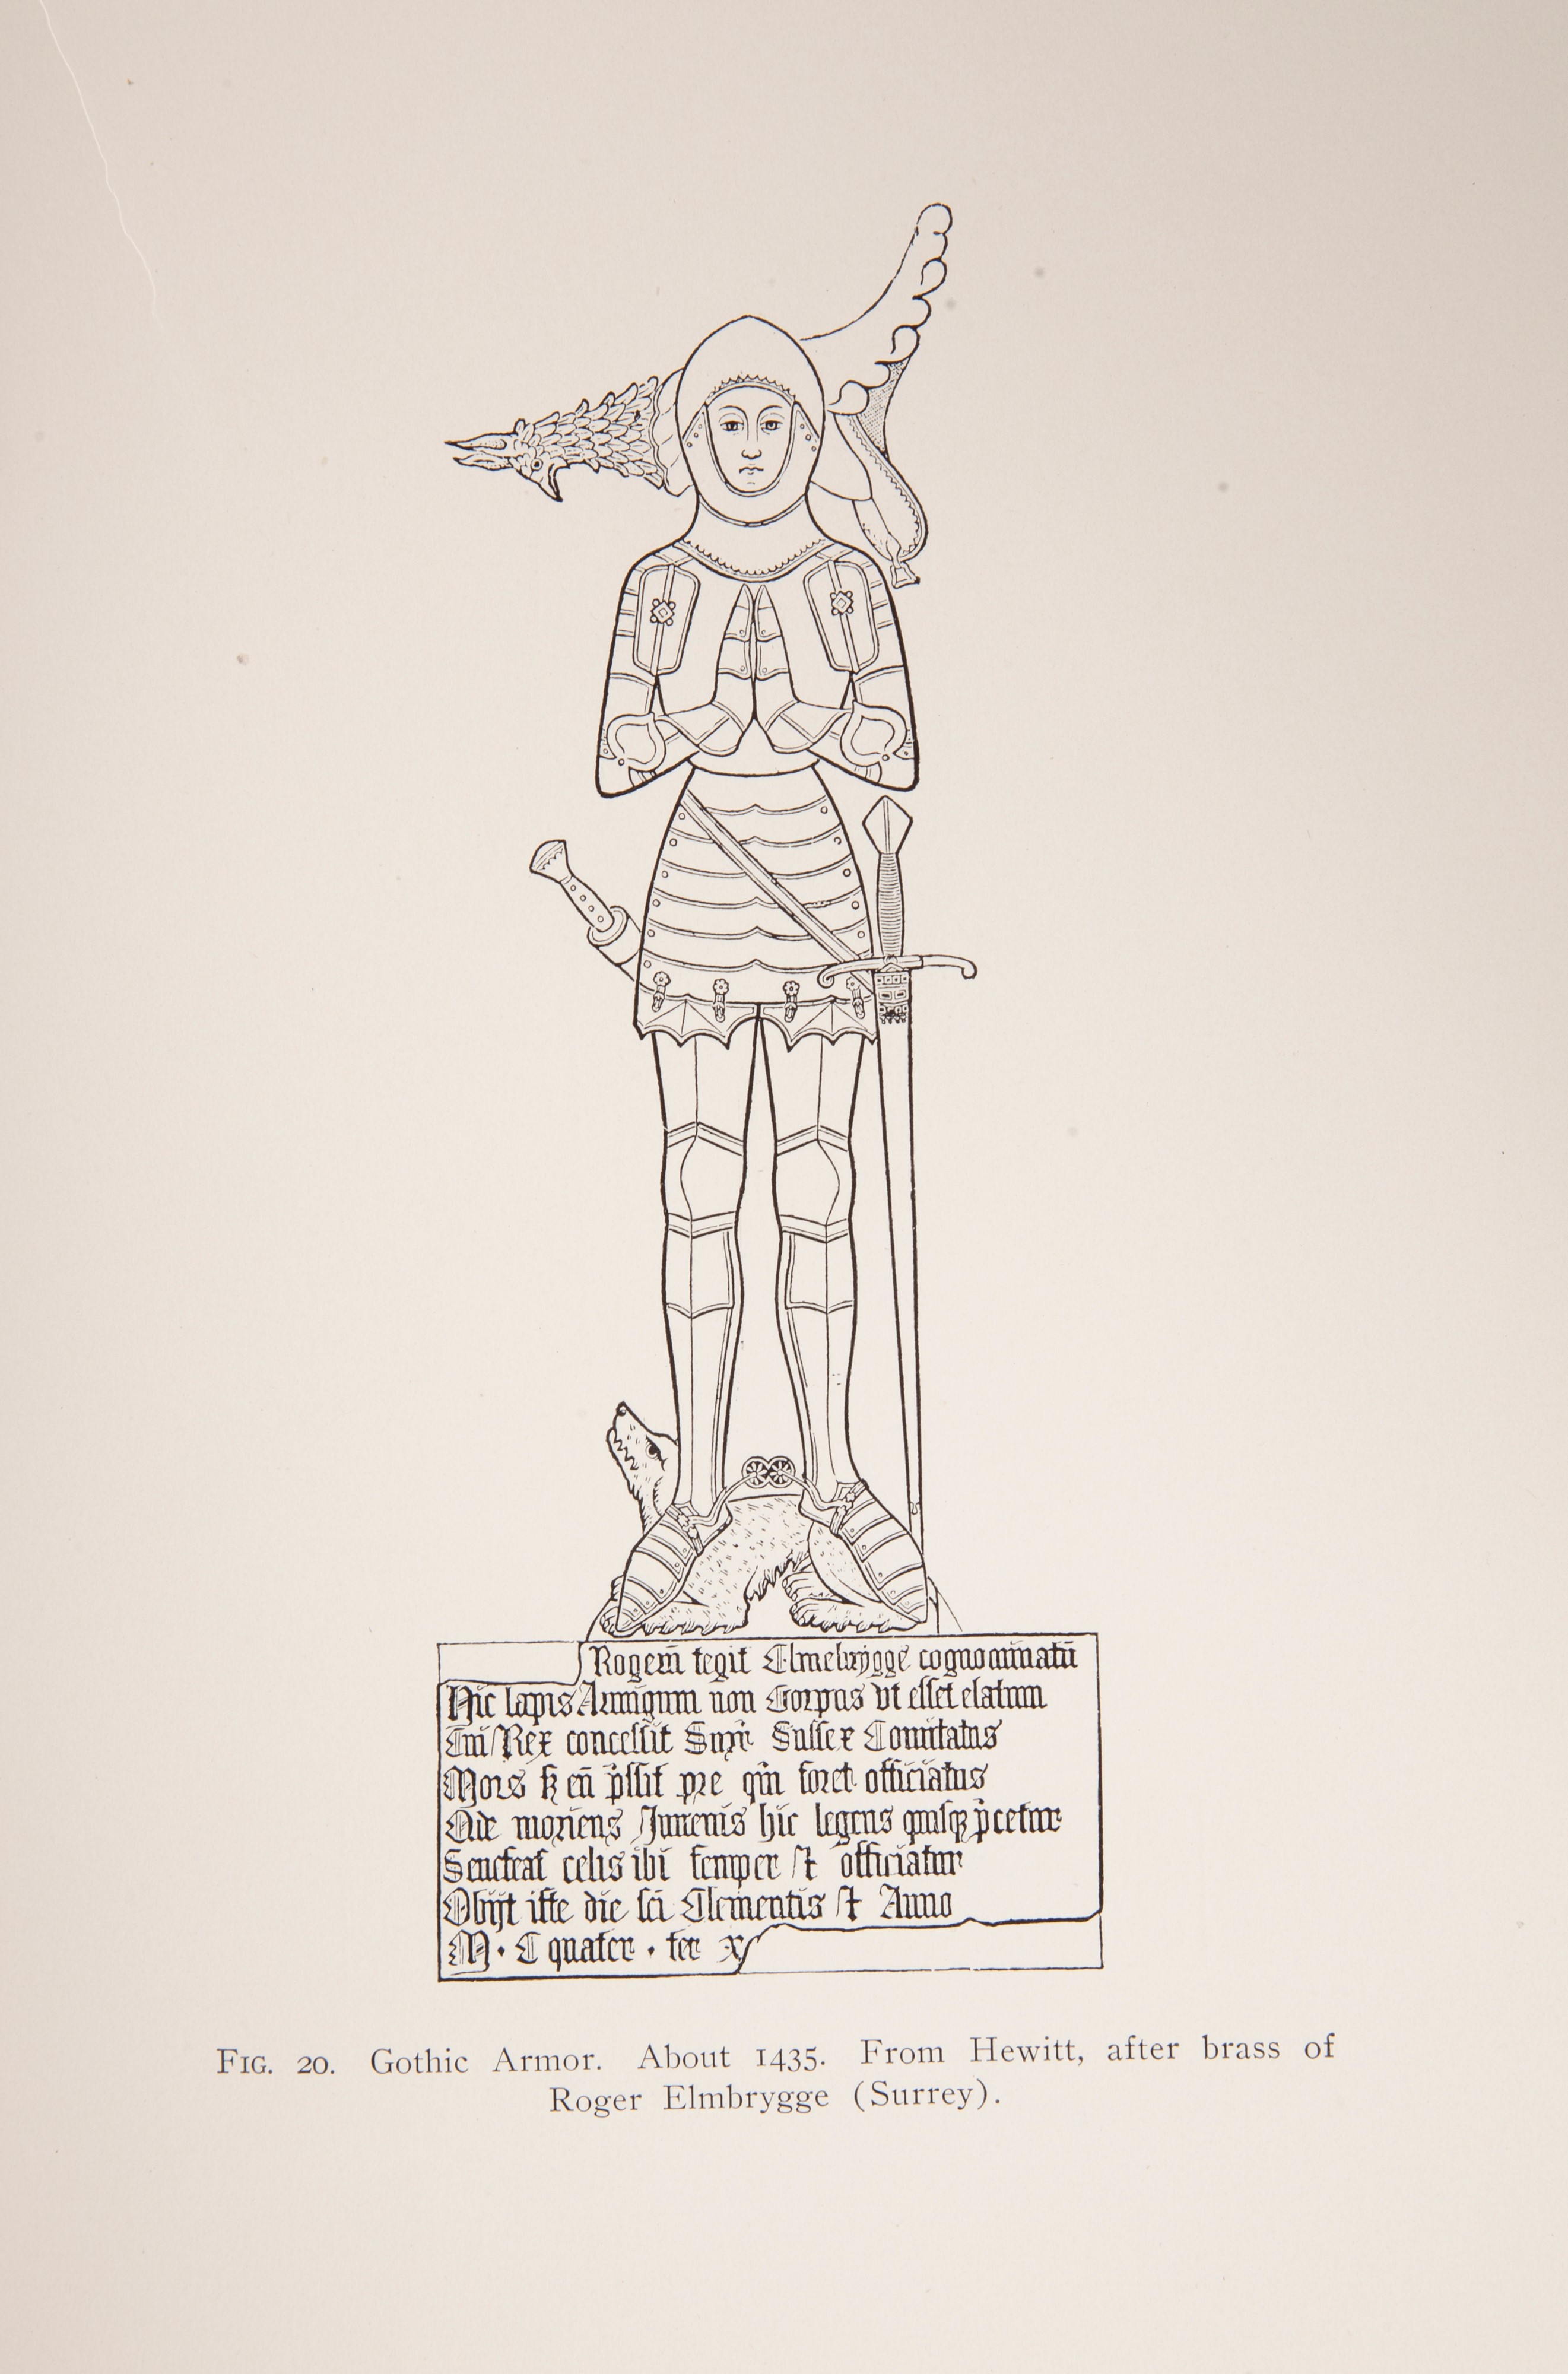 Rogerū tegit Elmebrygge cognominatū
Hic lapis Armigum non Corpus vt esset elatum
Cui Rex concessit Surr̄ Sussex Comitatus
Mors eū p̄ssit pre qm̄ foret officiatus
moriens Juvenis hic legens quisq̨ p̄cetur
celis ibi semper officiatur
Obijt iste die sc̄i Clementis Anno
M · C quater · ter x
FIG. 20. Gothic Armor. About 1435. From Hewitt, after brass of
Roger Elmbrygge (Surrey).